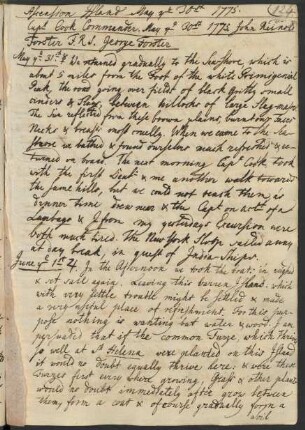 Ascension Island May ye 30th 1775. 124
Capt Cook Commander. May ye 30th 1775 John Reinold
Forster F.R.S. George Forster
May ye 31st We returned gradually to the Seashore, which is
about 5 miles from the foot of the white Primigenial
Peak, the road going over fields of black gritty small
cinders & Slags, between hillocks of large Slag-masses
The Sun reflected from these brown plains, burnt our Faces
Necks & breasts most cruelly. When we came to the Sea
Shore we bathed & found ourselves much refreshed & re-
turned on board. The next morning Capt Cook took
with the first Lieut: & me another walk towards
the same hills, but we could not reach them, as
dinner time drew near & the Capt on acct of a
& I from my yesterdays Excursion were
both much tired. The New York Sloop sailed away
at day break, in quest of India-Ships.
June ye 1st In the Afternoon we took the boat in, weighed
& set sail again. Leaving this barren Island, which
with very little trouble might be settled & made
a very useful place of refreshment. For this pur-
pose nothing is wanting but water & wood. I am
persuaded that if the common Furze, which thrives
so well at St Helena were planted on this Island
it would no doubt equally thrive here; & were these
Furzes first every where growing, Grass & other plants
would no doubt immediately after grow between
them, form a coat & of course gradually form a